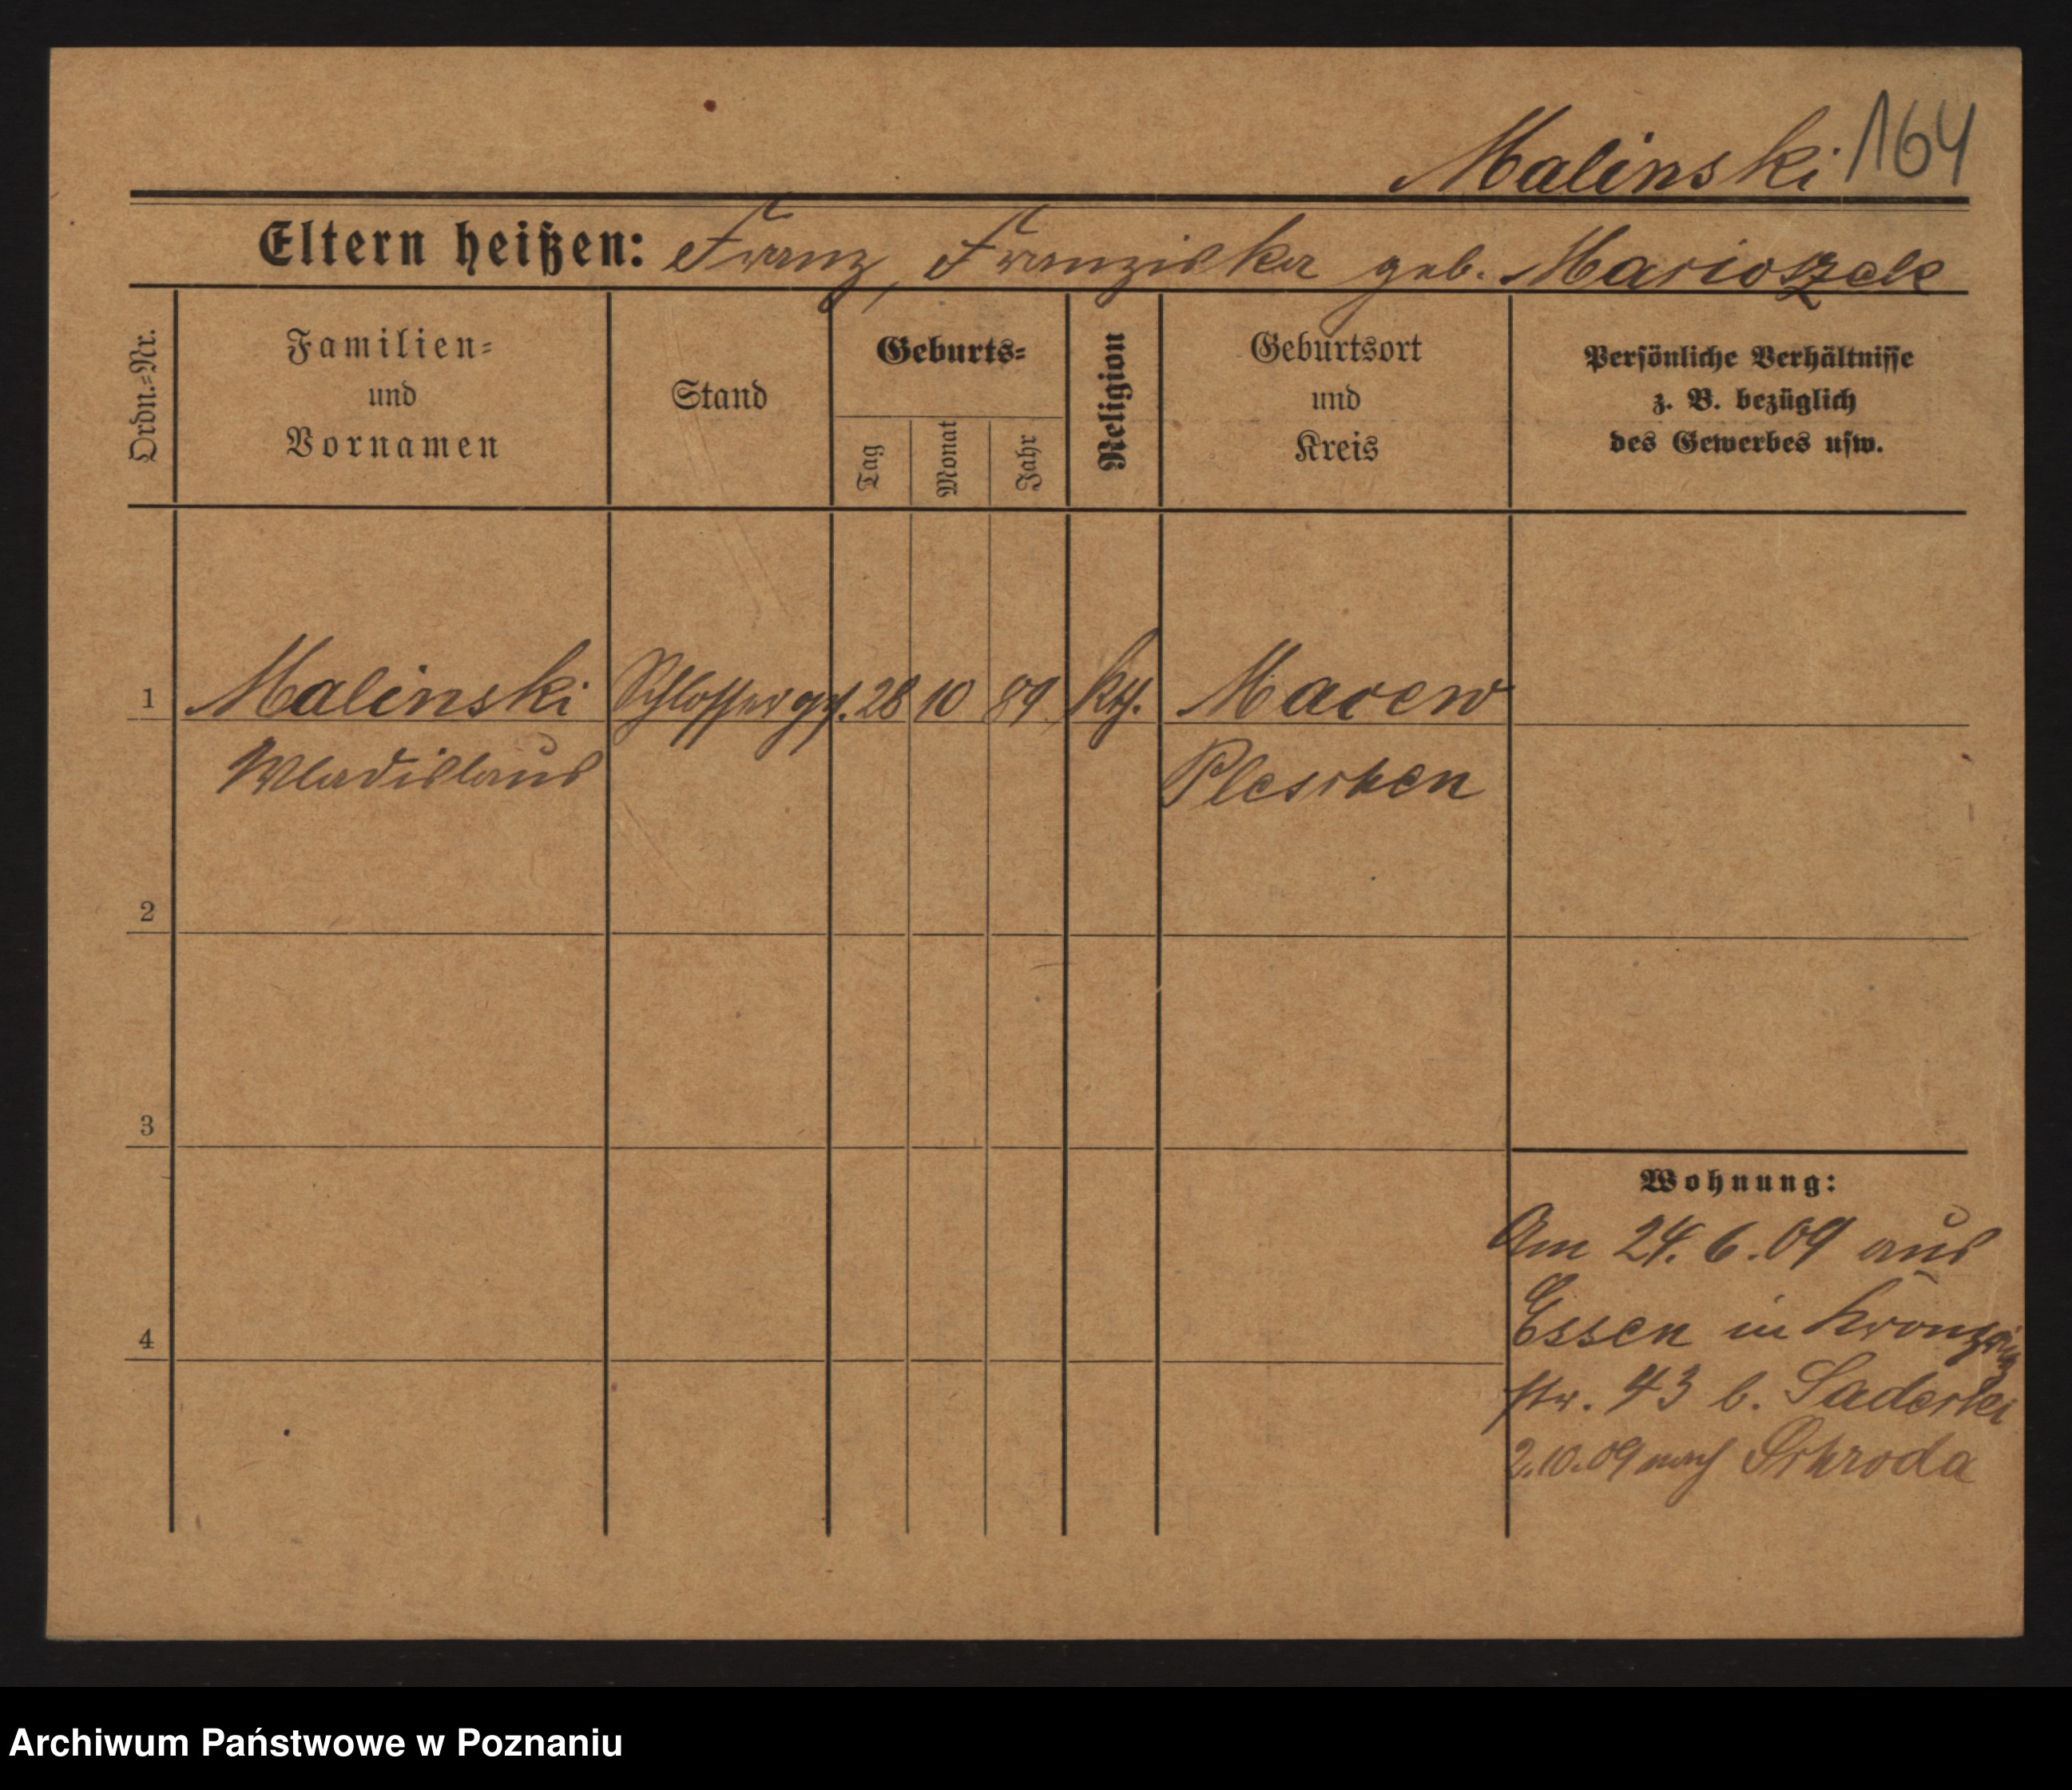 Malinski 164
Eltern heißen: Franz, Franziska geb. Marioszek
Ordn.=Nr.
Familien=
und
Vornamen
Stand
Geburts=
Tag
Monat
Jahr
Religion
Geburtsort
und
Kreis
Persönliche Verhältnisse
z. B. bezüglich
des Gewerbes usw.
1 Malinski Schlosserges. 28 10 89 kth. Marew
Wladislaus Pleschen
2
3
4
Wohnung:
Am 24. 6. 09 aus
Essen in Kronprinz
str. 43 b.
2.10.09 nach Schroda
Archiwum Państwowe w Poznaniu